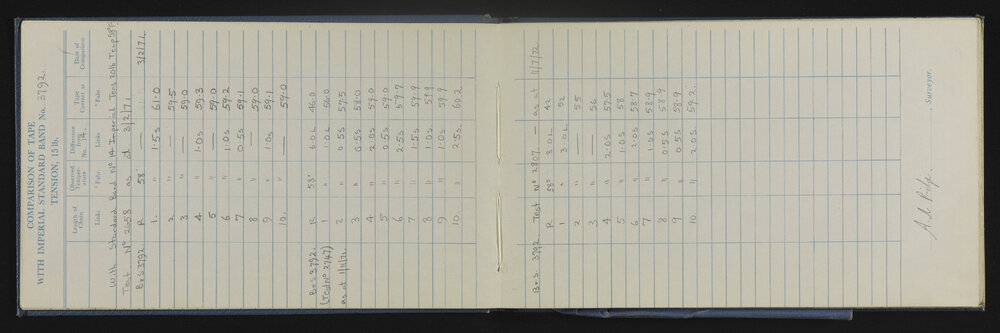 COMPARISON OF TAPE
WITH IMPERIAL STANDARD BAND No. 3792.
TENSION, 15 lb.
Length of Chain Observed Temperature Difference from No. 14. Tape Correct at Date of Comparison
Links ° Fahr. Links ° Fahr.
With Standard Band No 14 Imperial Tens 20lb Temp 58°F.
Test No 2658 as at 3/2/71.
Bxs 3792 R 58 — 3/2/71.
1. " 1.5s 61.0
2 " — 59.5
3 " — 59.0
4 " 1.0s 59.3
5 " — 59.0
6 " 1.0s 59.2
7 " 0.5s 59.1
8 " — 59.0
9 " 1.0s 59.1
10. " — 59.0
Bxs 3792. R 58° 6.0L 46.0
(Test No 2747) 1 " 1.0L 56.0
as at 11/11/71. 2 " 0.5s 57.5
3 " 0.5s 58.0
4 " 2.0s 59.0
5 " 0.5s 59.0
6 " 2.5s 59.7
7 " 1.5s 59.9
8 " 1.0s 59.9
9 " 1.0s 59.9
10 " 2.5s. 60.2
Bxs 3792. Test No 2807. — as at 11/7/72.
R 58° 8.0L 42
1 " 3.0L 52
2 " — 55
3 " — 56
4 " 2.0s 57.5
5 " 1.0s 58
6 " 2.0s 58.7
7 " 1.0s 58.9
8 " 0.5s 58.9
9 " 0.5s 58.9
10 " 2.0s 59.2.
Surveyor.